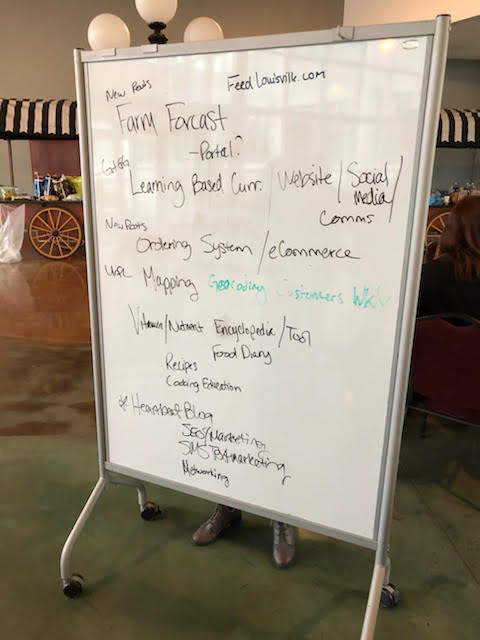 New Roots
FeedLouisville.com
Farm Forcast
-Portal?
Learning Based Curr. / Website / Social Media / Comms
New Roots
Ordering System / eCommerce
UofL Mapping Geocoding Customers
Vitamin/Nutrient Encyclopedia / Tool
Food Diary
Recipes
Cooking Education
* Heartbeet Blog
SEO/Marketing
SMS Text marketing
Networking